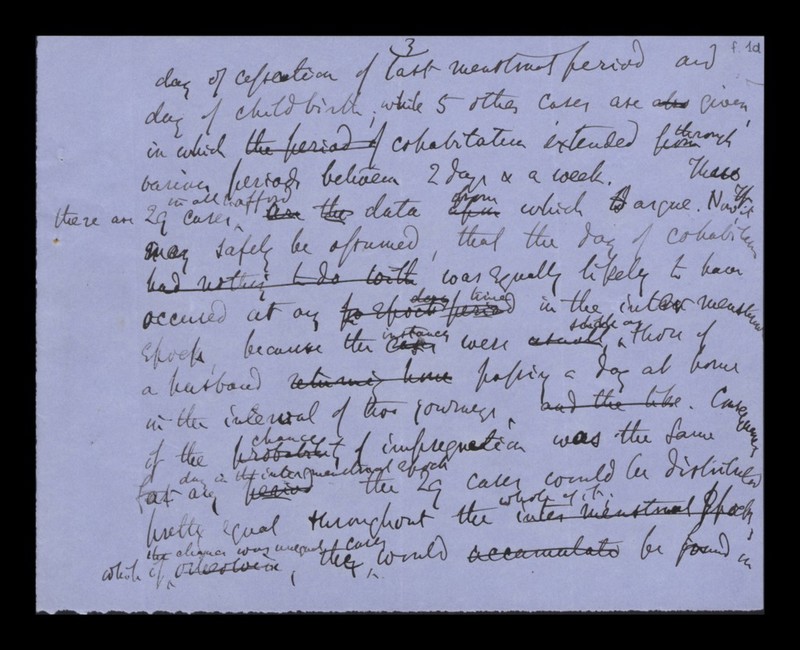 3
f. 1d
day of cessation of last menstrual period and
day of childbirth; while 5 other cases are also given,
in which the period of cohabitation extended from through
various periods between 2 days & a week. These
in all afford
there are 29 cases, are the data from upon which to argue. Now it
may safely be assumed, that the day of cohabitation
had nothing to do with was equally likely to have
occurred at any epoch period day time in the inter menstrual
Epoch, because the cases instances were such as those of
a husband returning home passing a day at home
in the interval of two journeys, and the like. Consequently
if the probability chance of impregnation was the same
day in the intermenstrual epoch
at any period the 29 cases would be distributed
pretty equal throughout the whole of it. inter menstrual Epoch,
the chance was unequal cases
while if otherwise, they would accumulate be found in